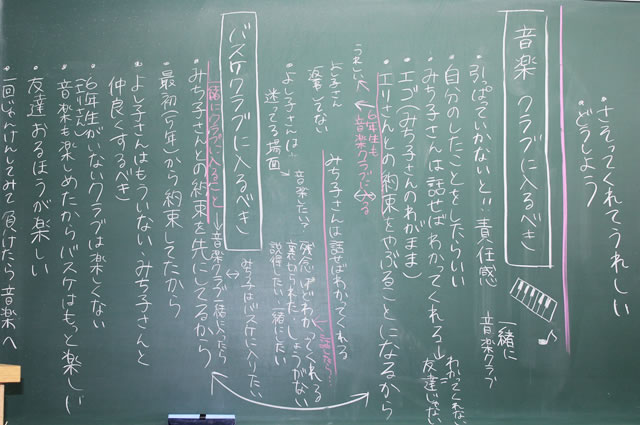 ・さそってくれてうれしい
・どうしよう
音楽クラブに入るべき
一緒に
音楽クラブ
・引っぱっていかないと!! 責任感
・自分のしたことをしたらいい
・みち子さんは話せばわかってくれる
わかってくれない
友達じゃない
・エゴ(みち子さんのわがまま)
・エリさんとの約束をやぶることになるから
6年生も
音楽クラブに入る
うれしい
よし子さん
みち子さんは話せばわかってくれる
・よし子さんは
迷ってる場面
音楽したい?
残念だけどわかってくれる
しょうがない
説得したい 一緒にしたい
バスケクラブに入るべき
・みち子さんとの約束を先にしてるから
一緒にクラブに入ること
音楽クラブ一緒に入ったら
みち子はバスケに入りたい
・最初(5年)から約束してたから
・よし子さんはもういない、みち子さんと
仲良くするべき
・6年生がいないクラブは楽しくない
・音楽も楽しめたからバスケはもっと楽しい
・友達おるほうが楽しい
・一回じゃんけんしてみて負けたら音楽へ